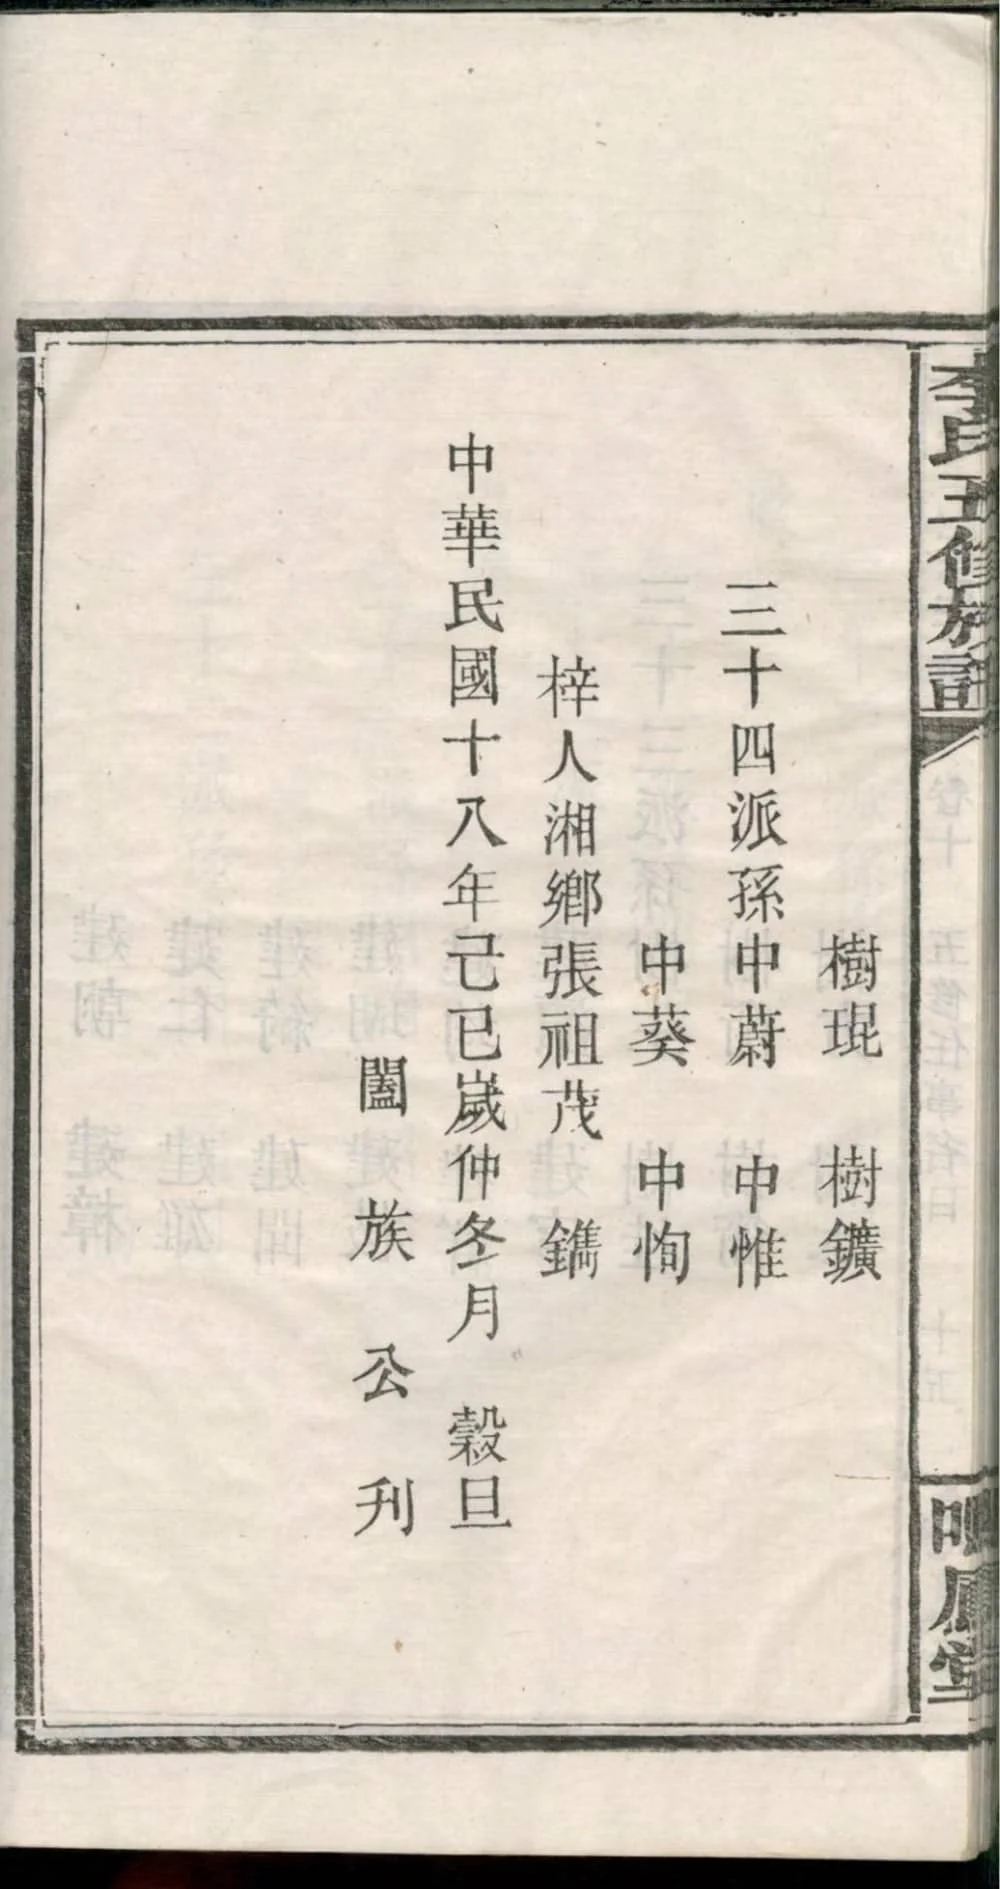 李氏五修族譜
樹琨 樹鑛
三十四派孫中蔚 中惟
中葵 中恂
梓人湘鄉張祖茂 鐫
中華民國十八年己巳歲仲冬月 穀旦
闔族公刊